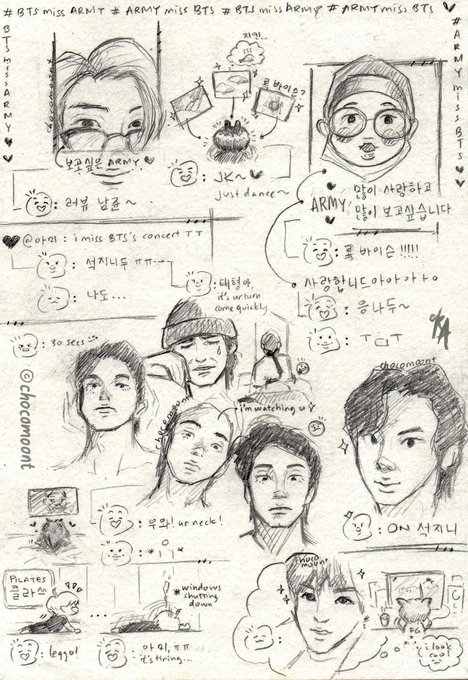 # BTS miss ARMY # ARMY miss BTS # BTS miss ARMY # ARMY miss BTS
BTS miss ARMY
# ARMY miss BTS
chocomoont
지민...
룩 바이슨?
보고싶은 ARMY
: 러뷰 남쥰~
: JK~
Just dance~
ARMY
많이 사랑하고
많이 보고싶습니다
@아미 : i miss BTS's concert ㅜㅜ
: 석지니두 ㅠㅠ
: 나도...
: 태형아,
it's ur turn
come quickly
: 룩 바이슨 !!!!!
사랑합니드아아아아
: 응나두~
: ㅜㅁㅜ
: 30 secs
© chocomoont
chocomoont
i'm watching u
chocomoont
: 우와! ur neck!
: ON 석지니
PILATES
클라쓰
*windows
shutting
down*
: leggo!
: 아미, ㅠㅠ
it's tiring...
choco
moont
i look
cool